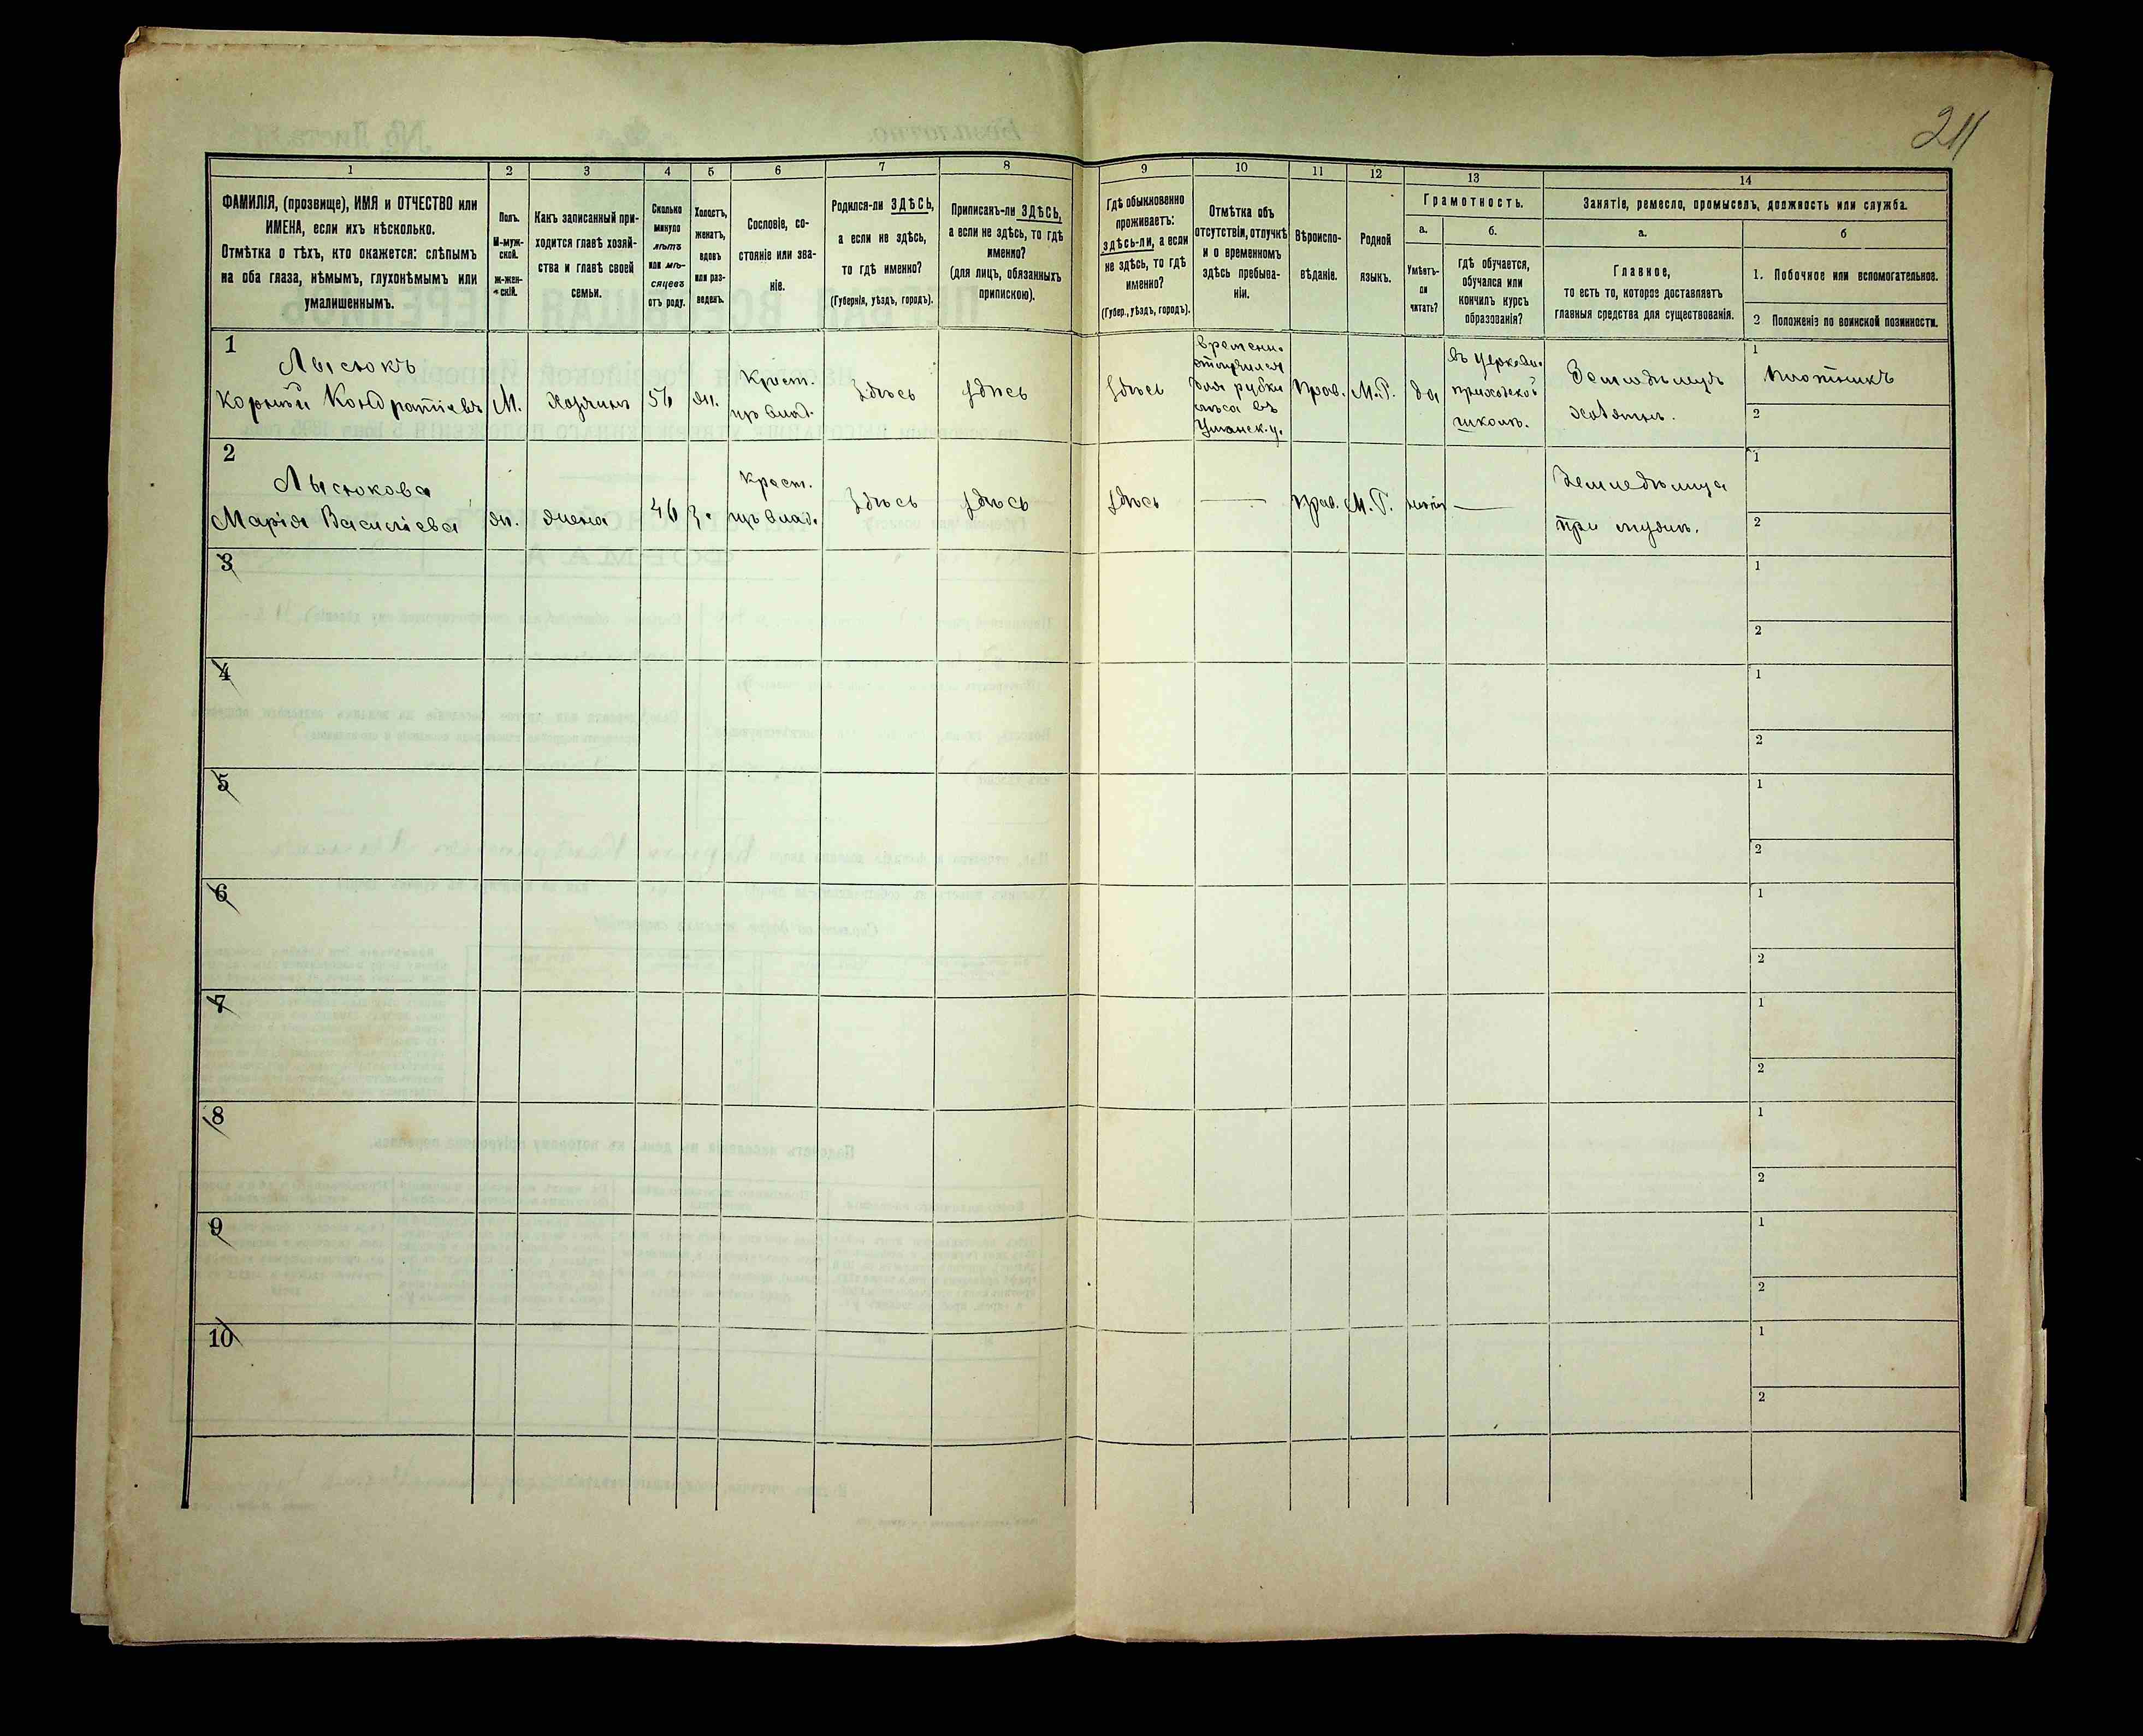 211
1
2
3
4
5
6
7
8
9
10
11
12
13
14
ФАМИЛІЯ, (прозвище), ИМЯ и ОТЧЕСТВО или
ИМЕНА, если ихъ нѣсколько.
Отмѣтка о тѣхъ, кто окажется: слѣпымъ
на оба глаза, нѣмымъ, глухонѣмымъ или
умалишеннымъ.
Полъ.
М-муж-
ской.
ж-жен-
скій.
Какъ записанный при-
ходится главѣ хозяй-
ства и главѣ своей
семьи.
Сколько
минуло
лѣтъ
или мѣ-
сяцевъ
отъ роду.
Холостъ,
женатъ,
вдовъ
или раз-
веденъ.
Сословіе, со-
стояніе или зва-
ніе.
Родился-ли ЗДѢСЬ,
а если не здѣсь,
то гдѣ именно?
(Губернія, уѣздъ, городъ).
Приписанъ-ли ЗДѢСЬ,
а если не здѣсь, то гдѣ
именно?
(для лицъ, обязанныхъ
припискою).
Гдѣ обыкновенно
проживаетъ:
здѣсь-ли, а если
не здѣсь, то гдѣ
именно?
(Губер., уѣздъ, городъ).
Отмѣтка объ
отсутствіи, отлучкѣ
и о временномъ
здѣсь пребыва-
ніи.
Вѣроиспо-
вѣданіе.
Родной
языкъ.
Грамотность.
а.
Умѣетъ-
ли
читать?
б.
гдѣ обучается,
обучался или
кончилъ курсъ
образованія?
Занятіе, ремесло, промыселъ, должность или служба.
а.
Главное,
то есть то, которое доставляетъ
главныя средства для существованія.
б
1. Побочное или вспомогательное.
2 Положеніе по воинской повинности.
1
Лысюкъ
Корній Кондратіевъ
М.
Хозяинъ
56
ж.
Крест.
изъ влад.
Здѣсь
здѣсь
здѣсь
Времени.
отлучился
для рубки
лѣса въ
Уманск. у.
Прав.
М.Р.
да
въ церковн.
приходской
школѣ.
Земледѣлецъ
хозяинъ.
1
плотникъ
2
2
Лысюкова
Марія Василіева
ж.
жена
46
з.
Крест.
изъ влад.
Здѣсь
здѣсь
здѣсь
—
Прав.
М.Р.
—
Земледѣлица
при мужѣ.
1
2
3
1
2
4
1
2
5
1
2
6
1
2
7
1
2
8
1
2
9
1
2
10
1
2